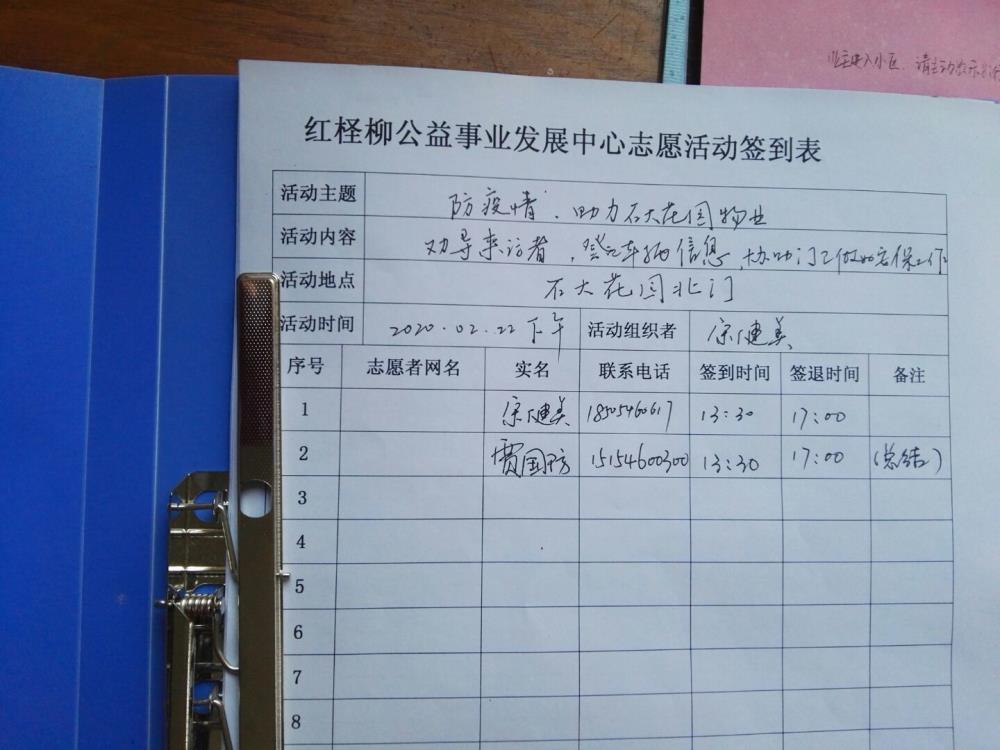 业主进入小区，请主动出示
红柽柳公益事业发展中心志愿活动签到表
活动主题 防疫情，助力石大花园物业
活动内容 劝导来访者，登记车辆信息，协助门卫做好安保工作
活动地点 石大花园北门
活动时间 2020.02.22下午 活动组织者 宗健美
序号 志愿者网名 实名 联系电话 签到时间 签退时间 备注
1 宗健美 18505460617 13:30 17:00
2 贾国防 15154600300 13:30 17:00 (总结)
3
4
5
6
7
8